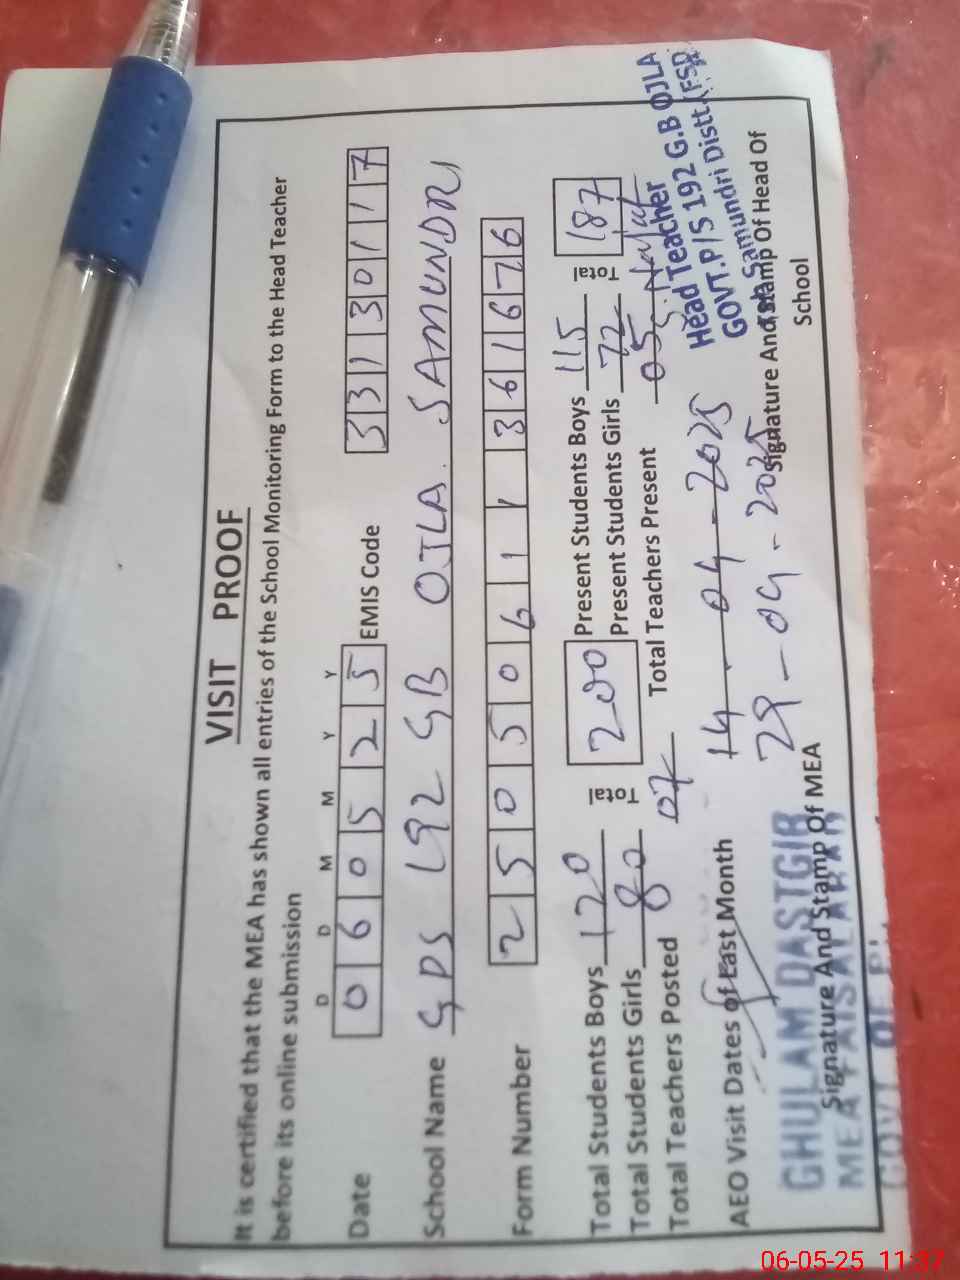 VISIT PROOF
It is certified that the MEA has shown all entries of the School Monitoring Form to the Head Teacher
before its online submission
D D M M Y Y
Date 0 6 0 5 2 5 EMIS Code 3 3 1 3 0 1 1 7
School Name GPS 192 GB OJLA. SAMUNDRI
Form Number 2 5 0 5 0 6 1 1 3 6 1 6 7 6
Total Students Boys 120 Total 200 Present Students Boys 115 Total 187
Total Students Girls 80 Present Students Girls 72
Total Teachers Posted 07 Total Teachers Present 05
AEO Visit Dates of Last Month 14-04-2025
29-04-2025
Head Teacher
GOVT.P/S 192 G.B OJLA
Samundri Distt. FSD
GHULAM DASTGIR
MEA FAISALABAD
GOVT OF
Signature And Stamp Of MEA
Signature And Stamp Of Head Of
School
06-05-25 11:37